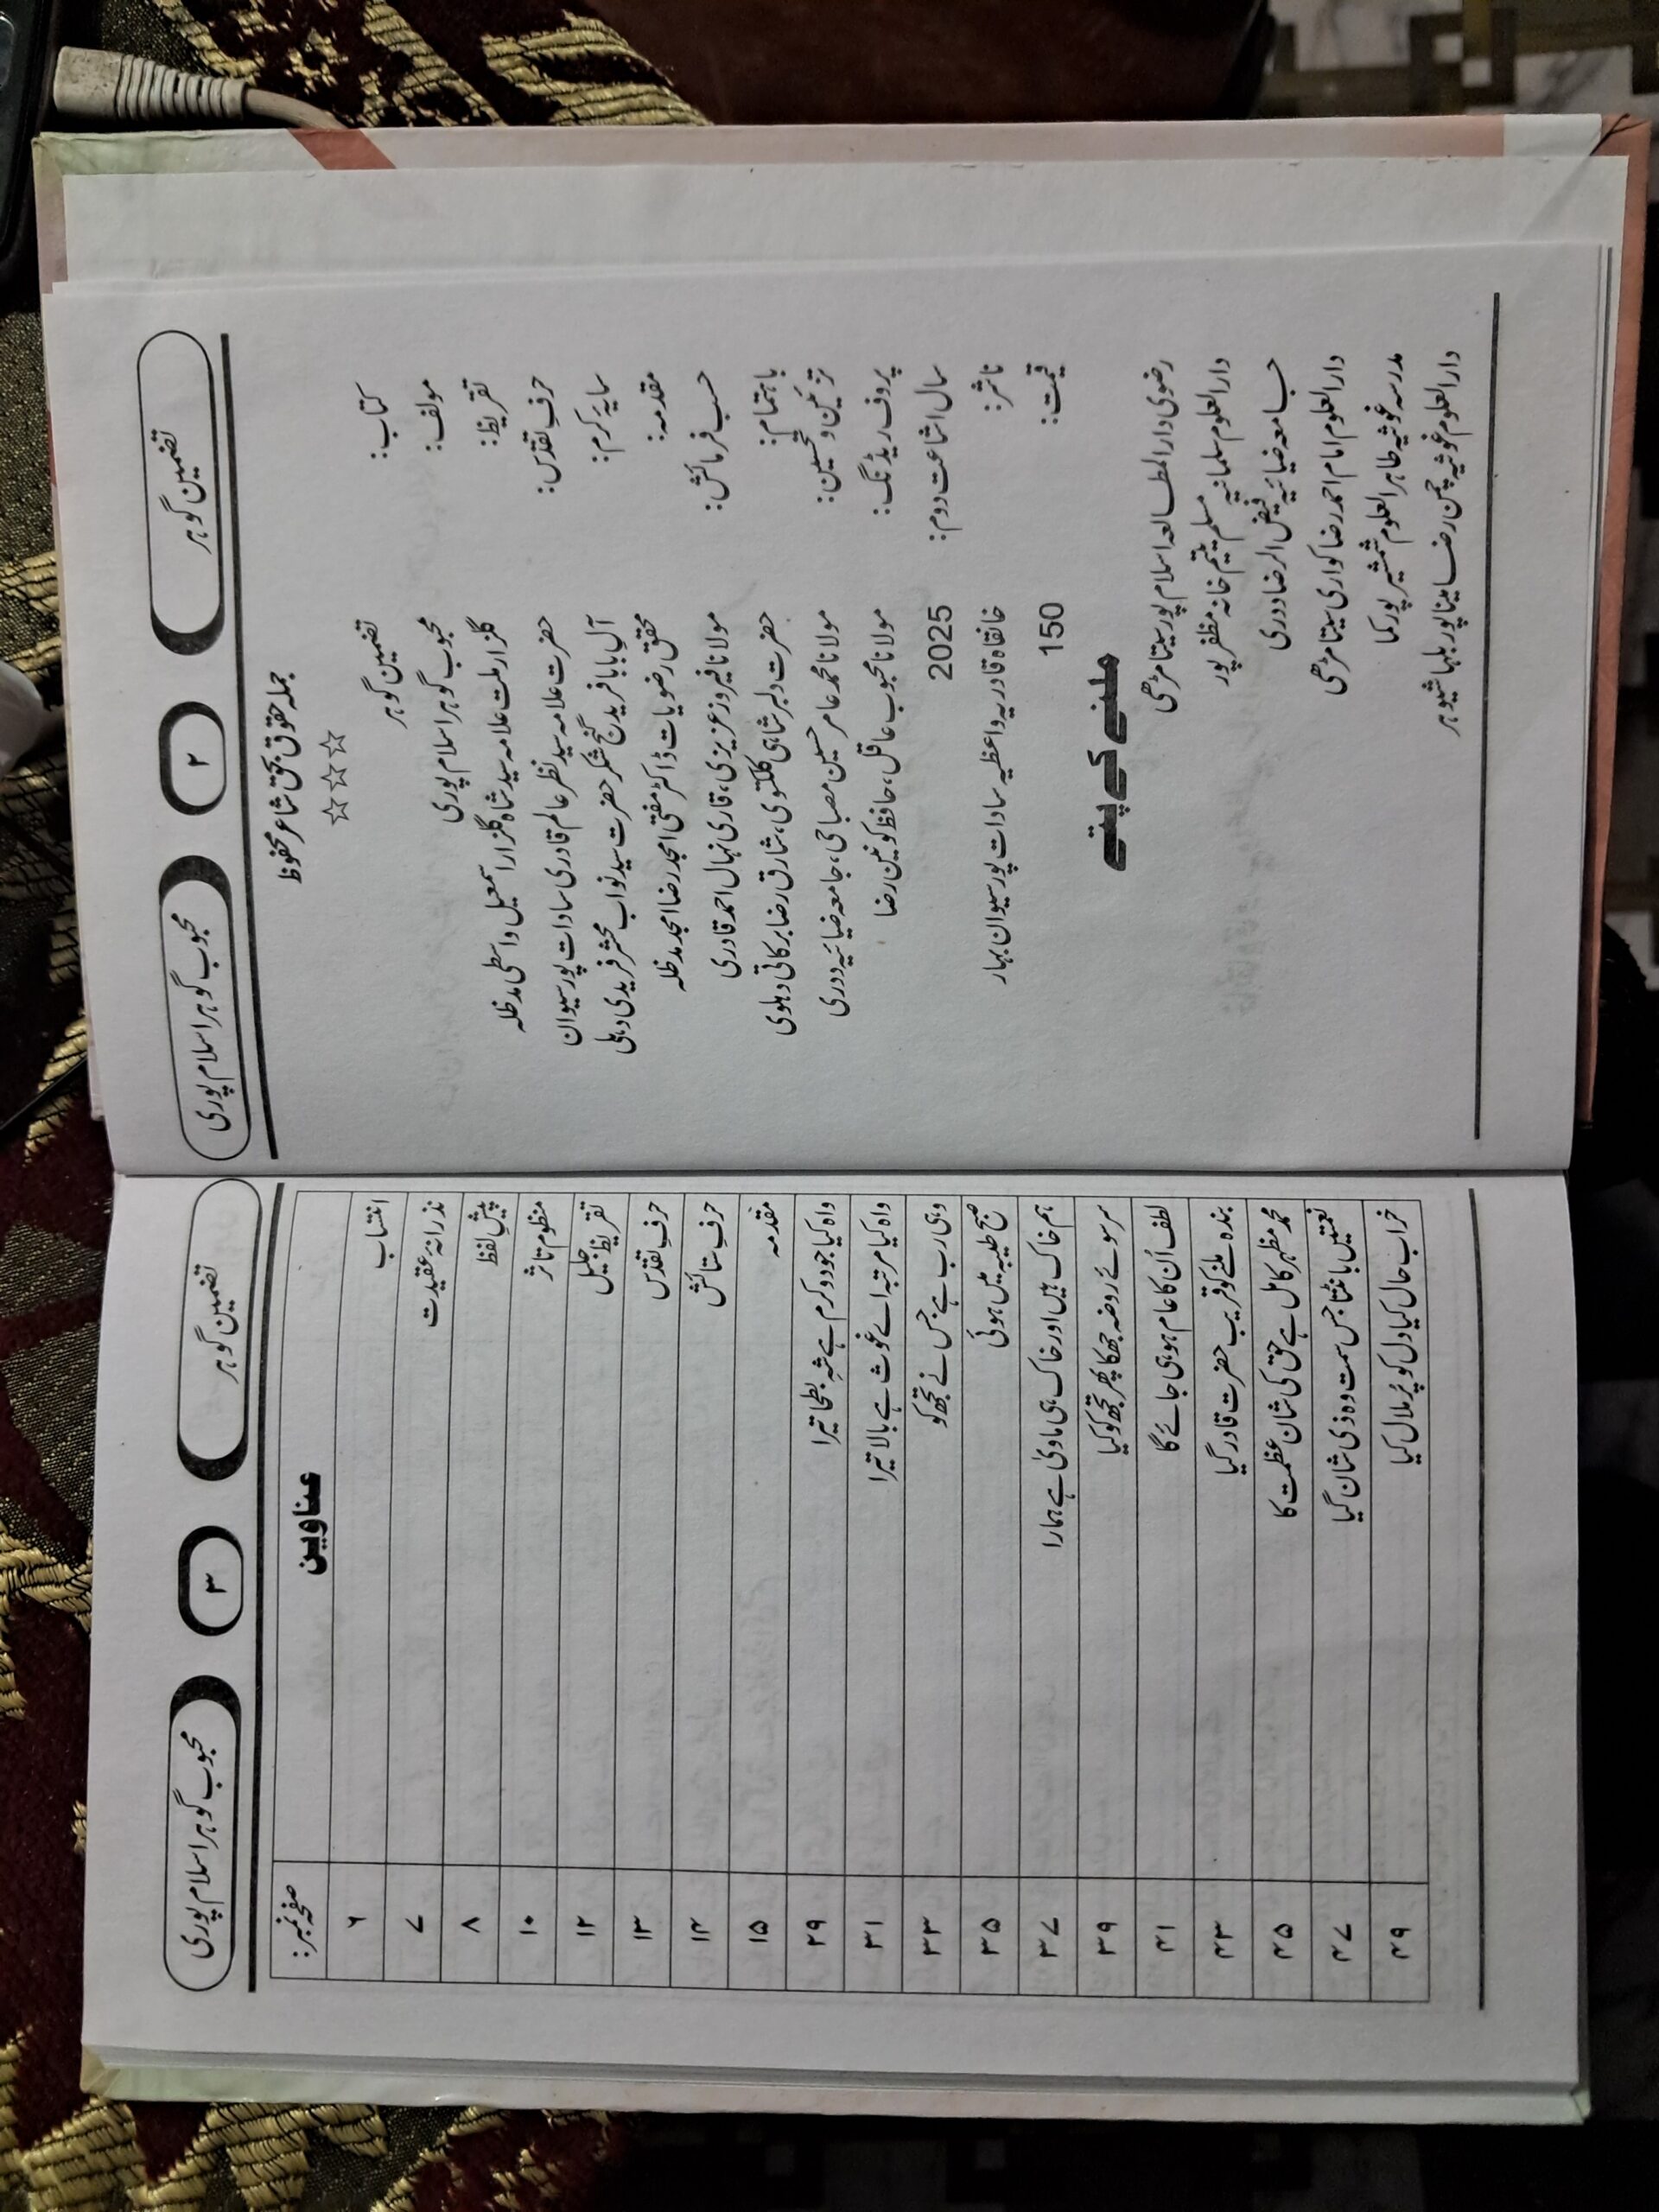 تضمین گوہر
۲
محبوب گوہر اسلام پوری
جملہ حقوق بحق شاعر محفوظ
☆☆☆☆
کتاب: تضمین گوہر
مولف: محبوب گوہر اسلام پوری
تقریظ: گلزار ملت علامہ سید شاہ گلزار اسمعیل واسطی مدظلہ
حرفِ تقدّس: حضرت علامہ سید نظر عالم قادری سادات پور سیوان
سایۂ کرم: آلِ بابا فرید گنج شکر حضرت سید نواب محشر فریدی دہلی
مقدمہ: محقق رضویات ڈاکٹر مفتی امجد رضا امجد مدظلہ
حسب فرمائش: مولانا فیروز عزیزی، قاری نہال احمد قادری
باہتمام: حضرت دلبر شاہی کلکتوی، شارق رضا برکاتی دہلوی
تزئین و تحسین: مولانا محمد عامر حسین مصباحی، جامعہ ضیائیہ ددری
پروف ریڈنگ: مولانا محبوب عاقل، حافظ کونین رضا
سال اشاعت دوم: 2025
ناشر: خانقاہ قادریہ واعظیہ سادات پور سیوان بہار
قیمت: 150
ملنے کے پتے
رضوی دارالمطالعہ اسلام پور سیتا مڑھی
دارالعلوم سلمانیہ مسلم یتیم خانہ مظفر پور
جامعہ ضیائیہ فیض الرضا ددری
دارالعلوم امام احمد رضا کواری سیتا مڑھی
مدرسہ غوثیہ طاہر العلوم شمشیر پور کما
دارالعلوم غوثیہ چمن رضا مینا پور بلہا شیوہر
تضمین گوہر
۳
محبوب گوہر اسلام پوری
عناوین صفحہ نمبر:
انتساب ۶
نذرانۂ عقیدت ۷
پیش لفظ ۸
منظوم تاثر ۱۰
تقریظِ جلیل ۱۲
حرفِ تقدّس ۱۳
حرفِ ستائش ۱۴
مقدمہ ۱۵
واہ کیا جود و کرم ہے شہِ بطحا تیرا ۲۹
واہ کیا مرتبہ اے غوث ہے بالا تیرا ۳۱
وہی رب ہے جس نے تجھ کو ۳۳
صبح طیبہ میں ہوئی ۳۵
ہم خاک ہیں اور خاک ہی ماویٰ ہے ہمارا ۳۷
سر سوئے روضہ جھکا پھر تجھ کو کیا ۳۹
لطف اُن کا عام ہو ہی جائے گا ۴۱
بندہ ملنے کو قریب حضرت قادر گیا ۴۳
محمد مظہر کامل ہے حق کی شان عظمت کا ۴۵
نعمتیں بانٹتا جس سمت وہ ذی شان گیا ۴۷
خراب حال کیا دل کو پُر ملال کیا ۴۹